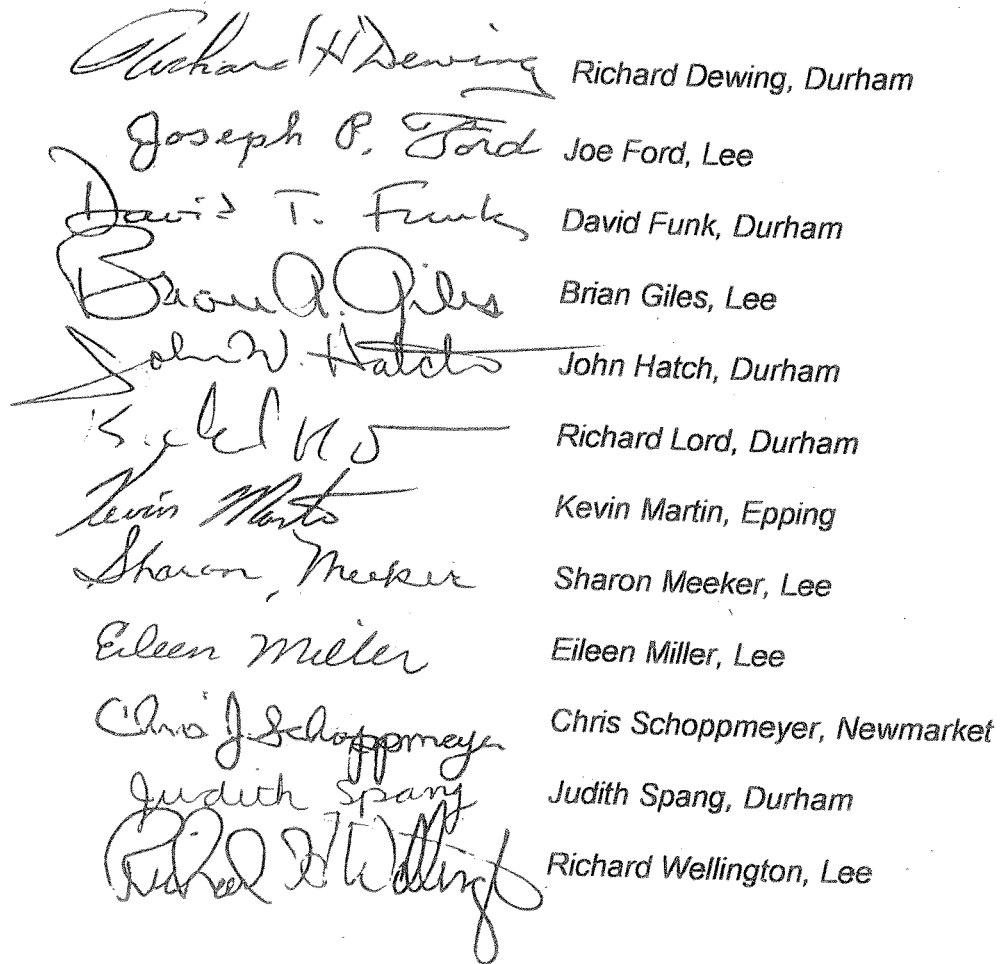 Richard H Dewing Richard Dewing, Durham
Joseph P. Ford Joe Ford, Lee
David T. Funk David Funk, Durham
Brian A. Giles Brian Giles, Lee
John W. Hatch John Hatch, Durham
Richard Lord, Durham
Kevin Martin Kevin Martin, Epping
Sharon Meeker Sharon Meeker, Lee
Eileen Miller Eileen Miller, Lee
Chris J. Schoppmeyer Chris Schoppmeyer, Newmarket
Judith Spang Judith Spang, Durham
Richard H Wellington Richard Wellington, Lee